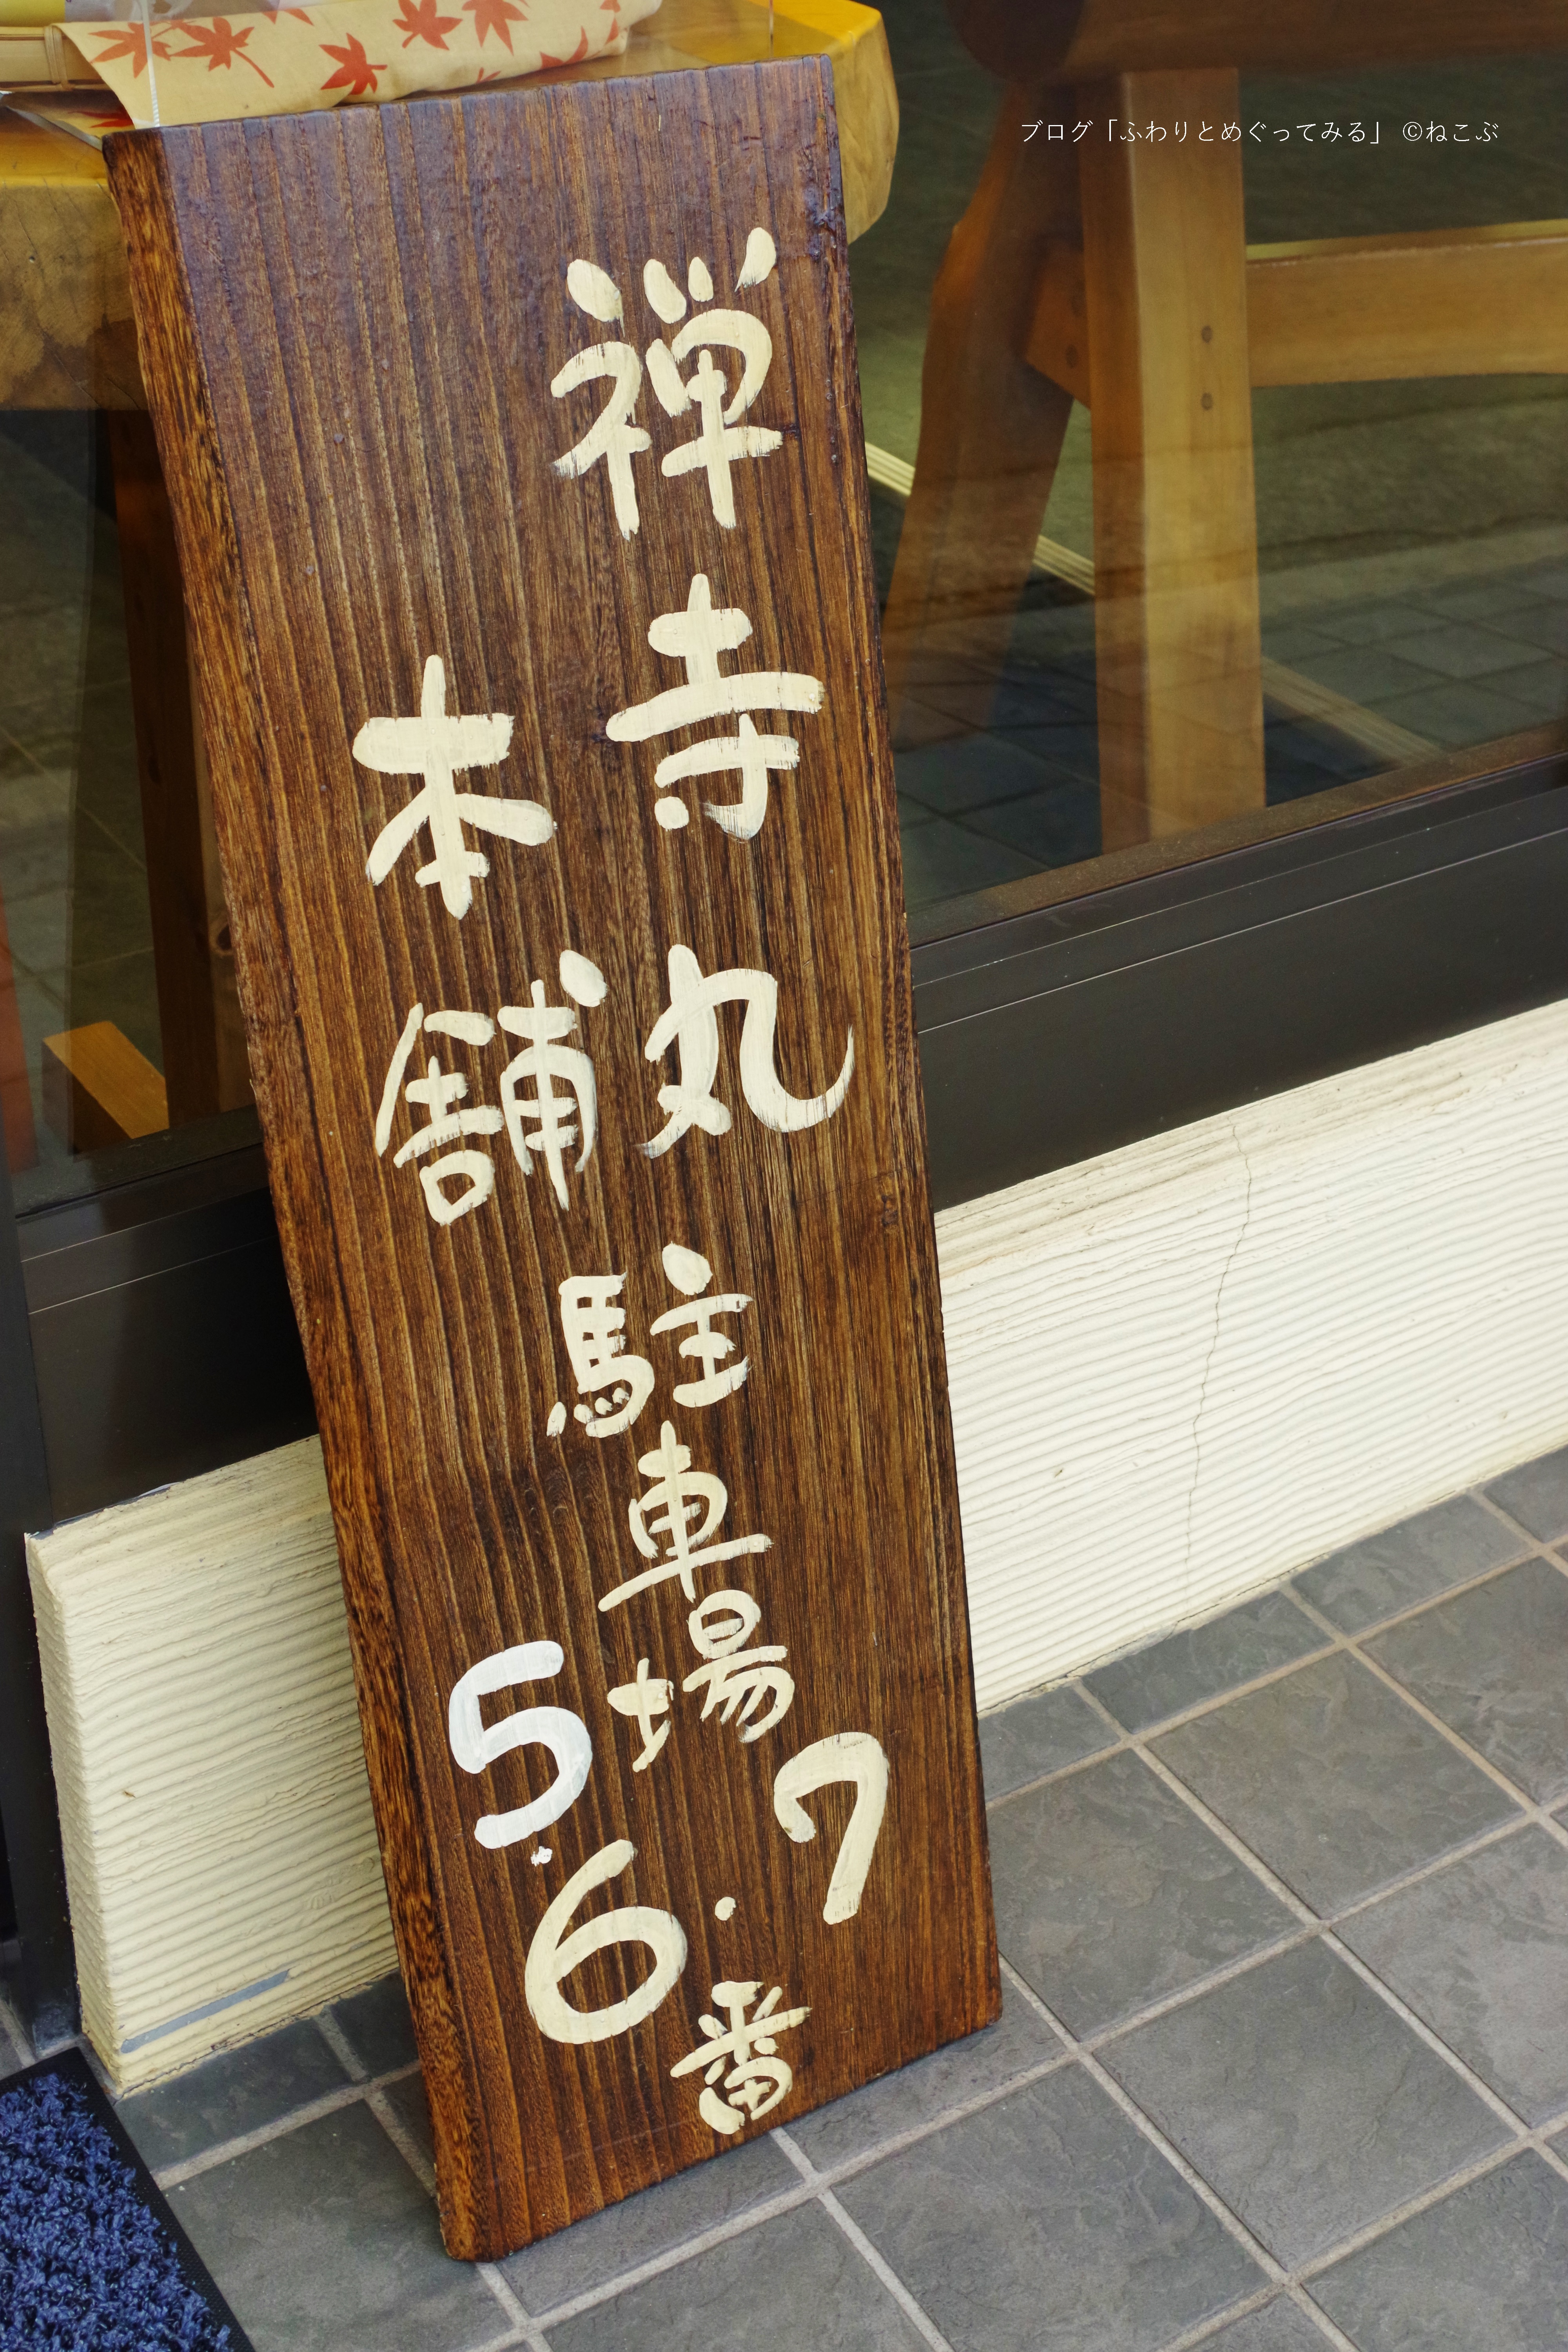 ブログ「ふわりとめぐってみる」 ©ねこぶ
禅寺丸
本舗
駐車場
5・6・7番